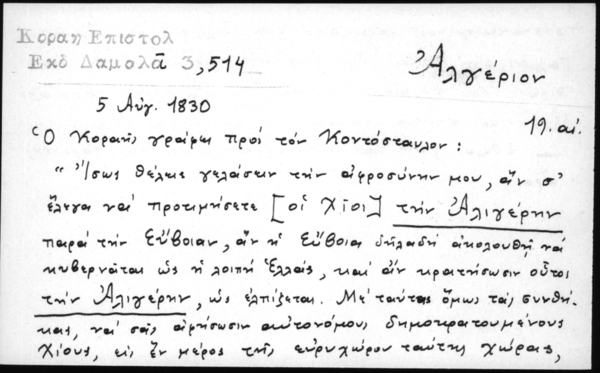 Κοραη Επιστολ
Εκδ Δαμαλᾶ 3,514
Ἀλγέριον
5 Αὐγ. 1830
19. αἰ.
Ὁ Κοραῆς γράφει πρὸς τὸν Κοντόσταυλον:
"Ἴσως θέλεις γελάσειν τὴν ἀφροσύνην μου, ἂν σ'
ἔλεγα νὰ προτιμήσετε [οἱ Χῖοι] τὴν Ἀλιγέρην
παρὰ τὴν Εὔβοιαν, ἂν ἡ Εὔβοια δηλαδὴ ἀκολουθῇ νὰ
κυβερνᾶται ὡς ἡ λοιπὴ Ἑλλάς, καὶ ἂν κρατήσωσιν οὗτοι
τὴν Ἀλιγέρην, ὡς ἐλπίζεται. Μὲ ταύτας ὅμως τὰς συνθή-
κας, νὰ σᾶς ἀφήσωσιν αὐτονόμους δημοκρατουμένους
Χίους, εἰς ἓν μέρος τῆς εὐρυχώρου ταύτης χώρας,